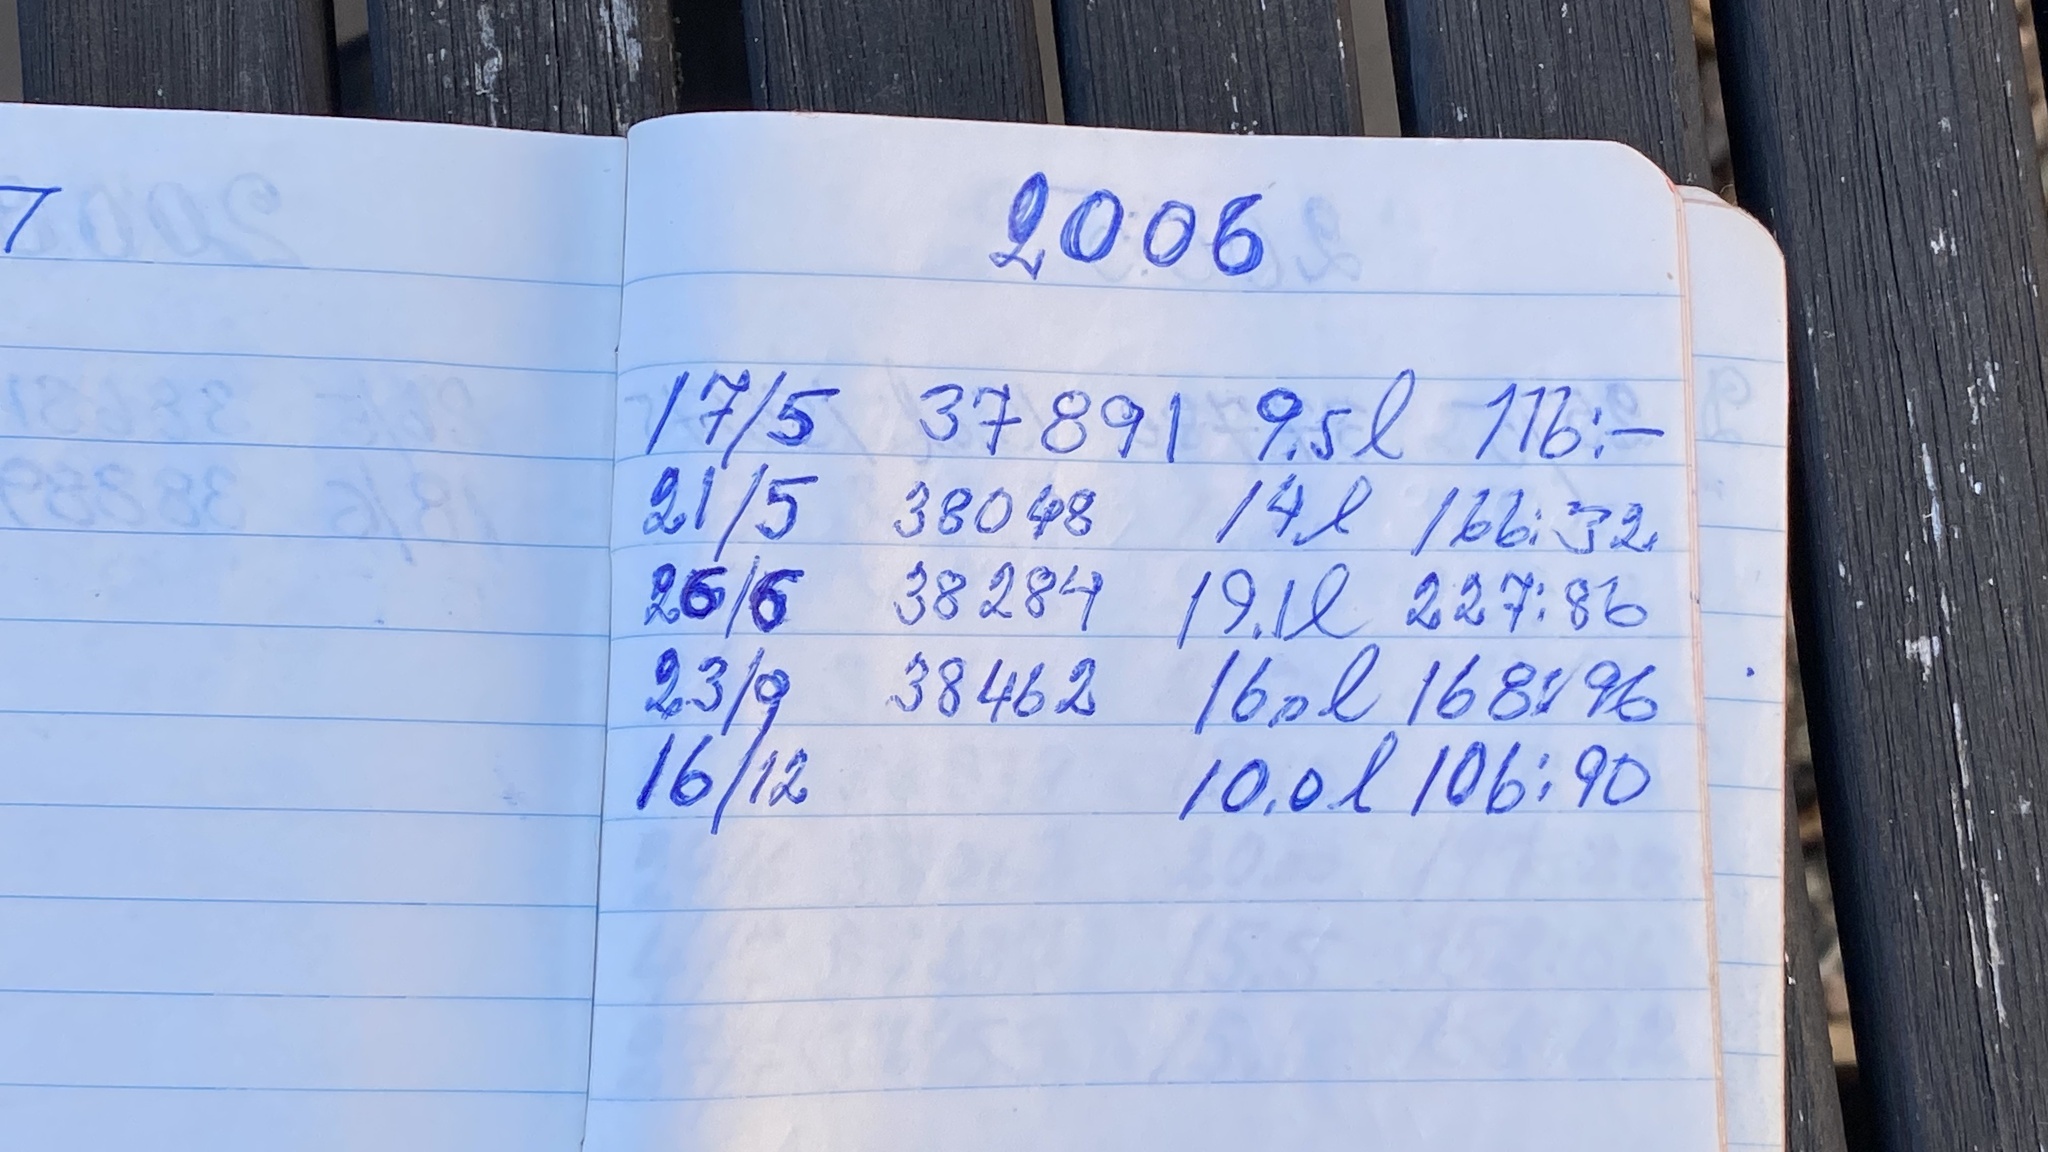 2006
17/5 37891 9.5l 116:-
21/5 38048 14.l 166:32
26/6 38284 19.1l 227:86
23/9 38462 16.0l 168:96
16/12 10.0l 106:90